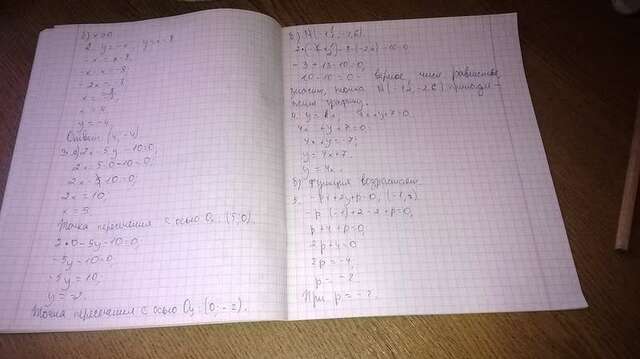 б) x>0
2. y=-x, y=x-8
-x=x-8
-x-x=-8
-2x=-8
x=-8
x=4
y=-4
Ответ: (4,-4)
3. а) 2x-5y-10=0
2x-5·0-10=0
2x-10=0
2x=10,
x=5
Точка пересечения с осью Ox: (5,0).
2·0-5y-10=0,
-5y-10=0
5y=10,
y=-2.
Точка пересечения с осью Oy: (0,-2).
-3+13-10=0,
10-10=0 - верное, числ равенство
значит, точка принадле-
жит графику.
4. y=kx, 4x+y+7=0
4x+y+7=0
4x+y=-7;
y=4x+7
y=4x.
б) Функция возрастает
5. -px+2y+p=0, (-1,2)
-p·(-1)+2·2+p=0,
p+4+p=0,
2p+4=0
2p=-4,
p=-2
При p=-2.